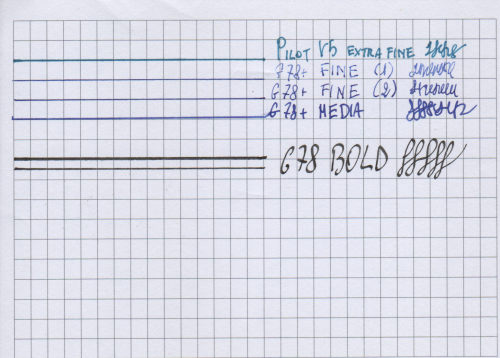 PILOT V5 EXTRA FINE
778+ FINE (1)
G78+ FINE (2)
G78+ MEDIA
G78 BOLD